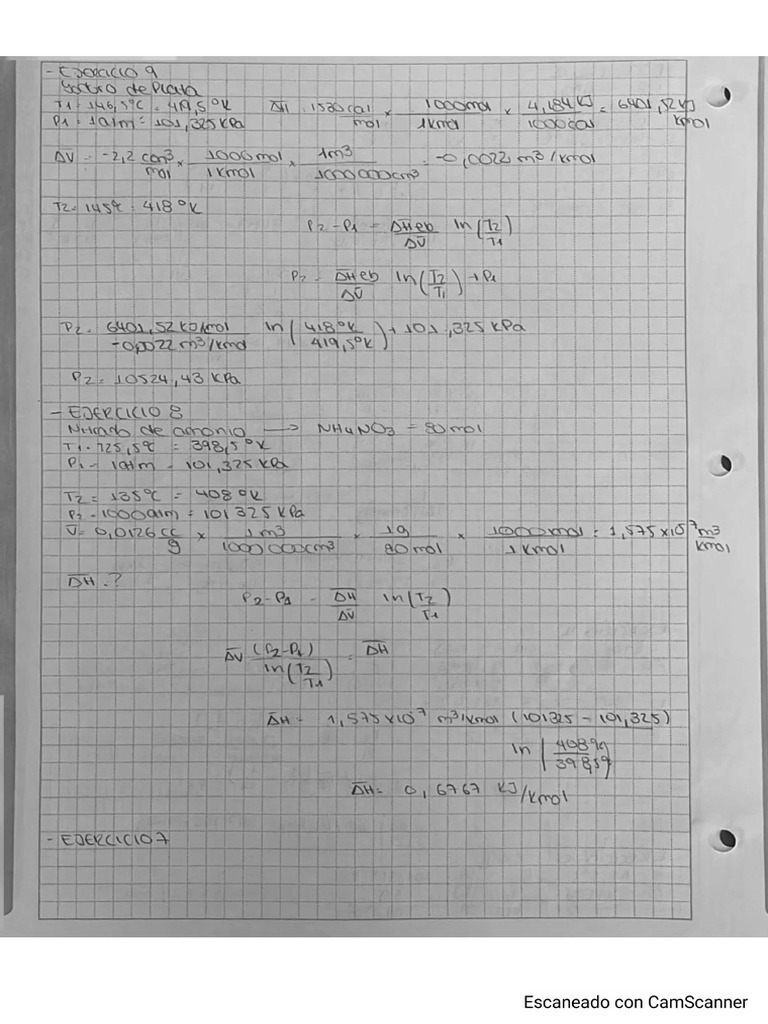 - EJERCICIO 9
Yoduro de Plata
T1 = 146,5°C = 419,5°K ΔH = 1530 cal/mol × 1000mol/1kmol × 4,184KJ/1000cal = 6401,52 KJ/kmol
P1 = 1atm = 101,325 kPa
ΔV = -2,2 cm³/mol × 1000mol/1kmol × 1m³/1000000cm³ = -0,0022 m³/kmol
T2 = 145°C = 418°K
P2-P1 = ΔHeb/ΔV ln(T2/T1)
P2 = ΔHeb/ΔV ln(T2/T1) + P1
P2 = 6401,52 KJ/kmol / -0,0022 m³/kmol ln(418°K/419,5°K) + 101,325 kPa
P2 = 10524,43 kPa
- EJERCICIO 8
Nitrado de amonio → NH4NO3 = 80mol
T1 = 125,5°C = 398,5°K
P1 = 1atm = 101,325 kPa
T2 = 135°C = 408°K
P2 = 1000atm = 101325 kPa
V = 0,0126 cc/g × 1m³/1000000cm³ × 1g/80mol × 1000mol/1kmol = 1,575×10⁻⁷ m³/kmol
ΔH = ?
P2-P1 = ΔH/ΔV ln(T2/T1)
ΔV (P2-P1)/ln(T2/T1) = ΔH
ΔH = 1,575×10⁻⁷ m³/kmol (101325 - 101,325)
ln (408°K/398,5°K)
ΔH = 0,6767 KJ/kmol
- EJERCICIO 7
Escaneado con CamScanner